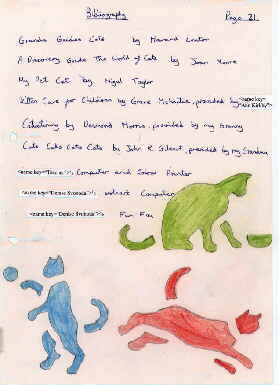 Bibliography
Page 21.
Grandos Guides Cats by Howard Loxton
A Discovery Guide The World of Cats by Joan Moore
My Pet Cat by Nigel Taylor
Kitten Care for Children by Grace McHattie, provided by <name key=
Catwatching by Desmond Morris, provided by my Granny
Cats Cats Cats Cats by John R. Gilbert, provided by my Grandma
Computer and Colour Printer
<name key="Denise Svoboda">'s Computer
<name key="Denise Svoboda">'s Fun Fax